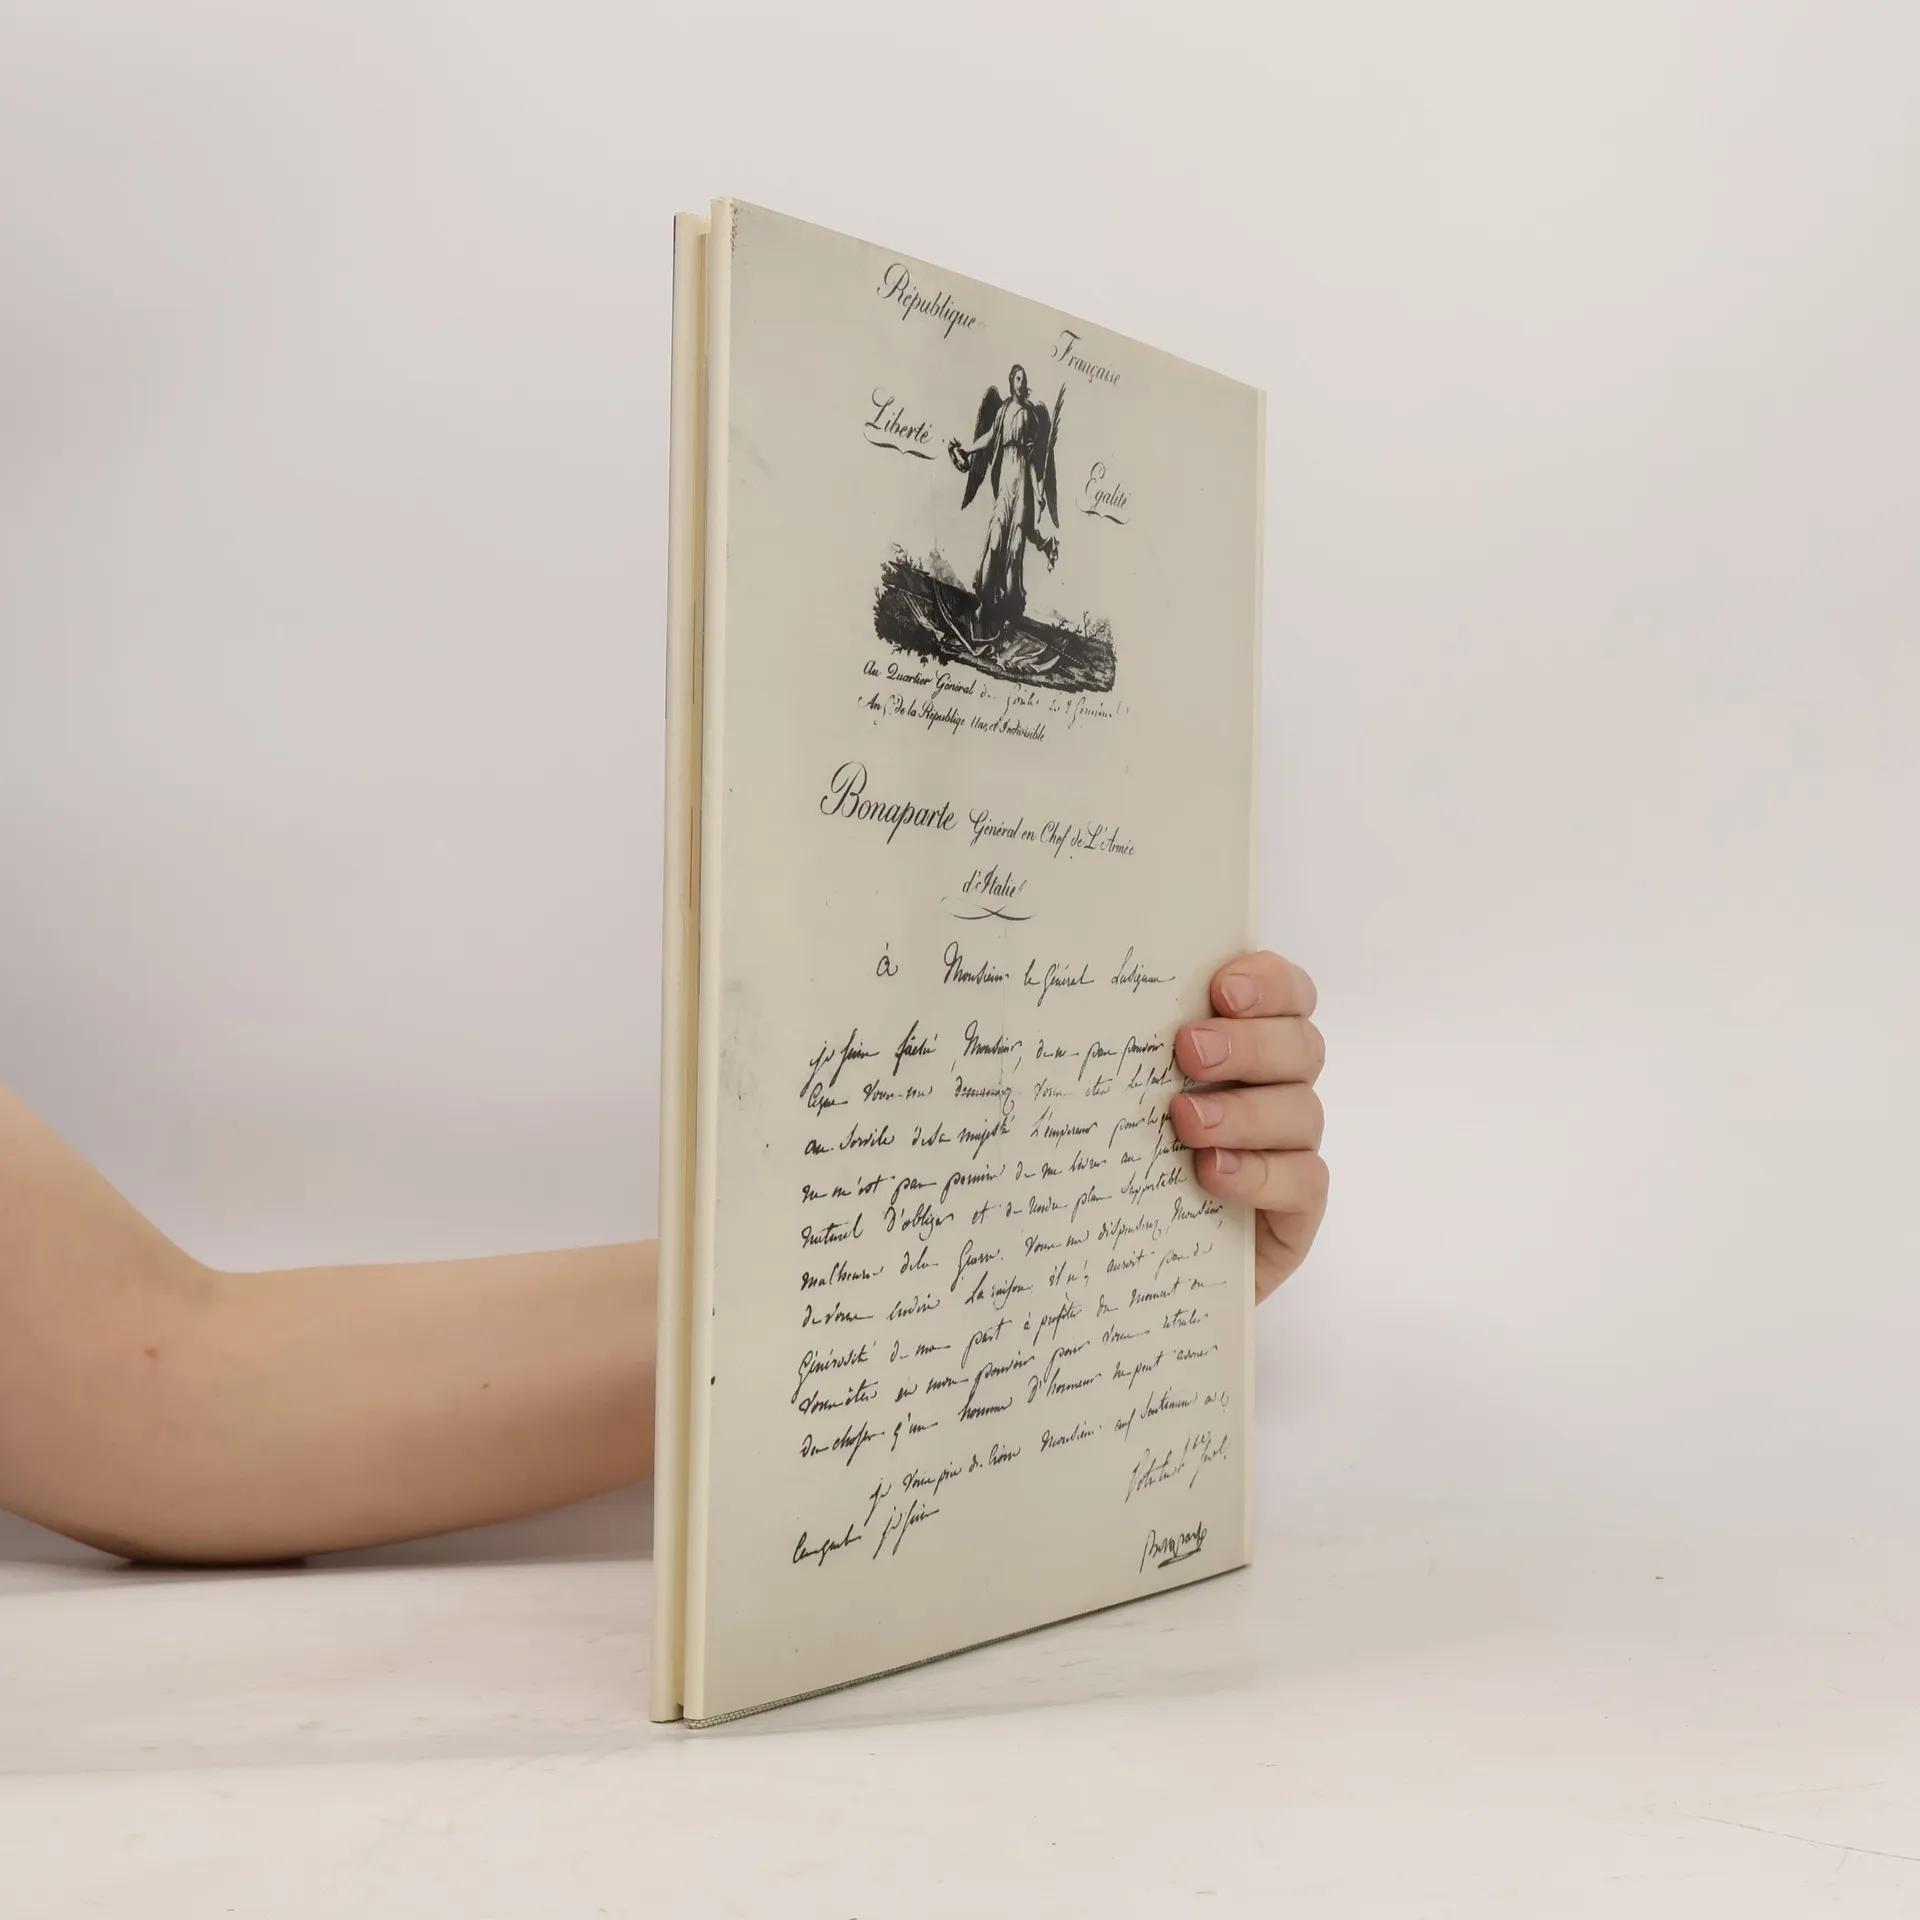 République Française
Liberté Egalité
Au Quartier Général de
An 5.e de la République Une, et Indivisible
Bonaparte Général en Chef de L'Armée
d'Italie
à Monsieur le Général Lusignan
je suis fâché, Monsieur, de ne pas pouvoir
ce que vous me demandez. Vous êtes
au service de sa majesté L'empereur pour le
ne m'est pas permis de me livrer au
naturel d'obliger et de rendre plus supportable
malheurs de la Guerre. Vous me dispenserez, Monsieur,
de vous en dire La raison, il n'y auroit pas de
Générosité de ma part à profiter du moment où
vous êtes en mon pouvoir pour vous
des choses q'un homme d'honneur ne peut avouer
je vous prie de croire Monsieur aux Sentimens
je suis
Bonaparte